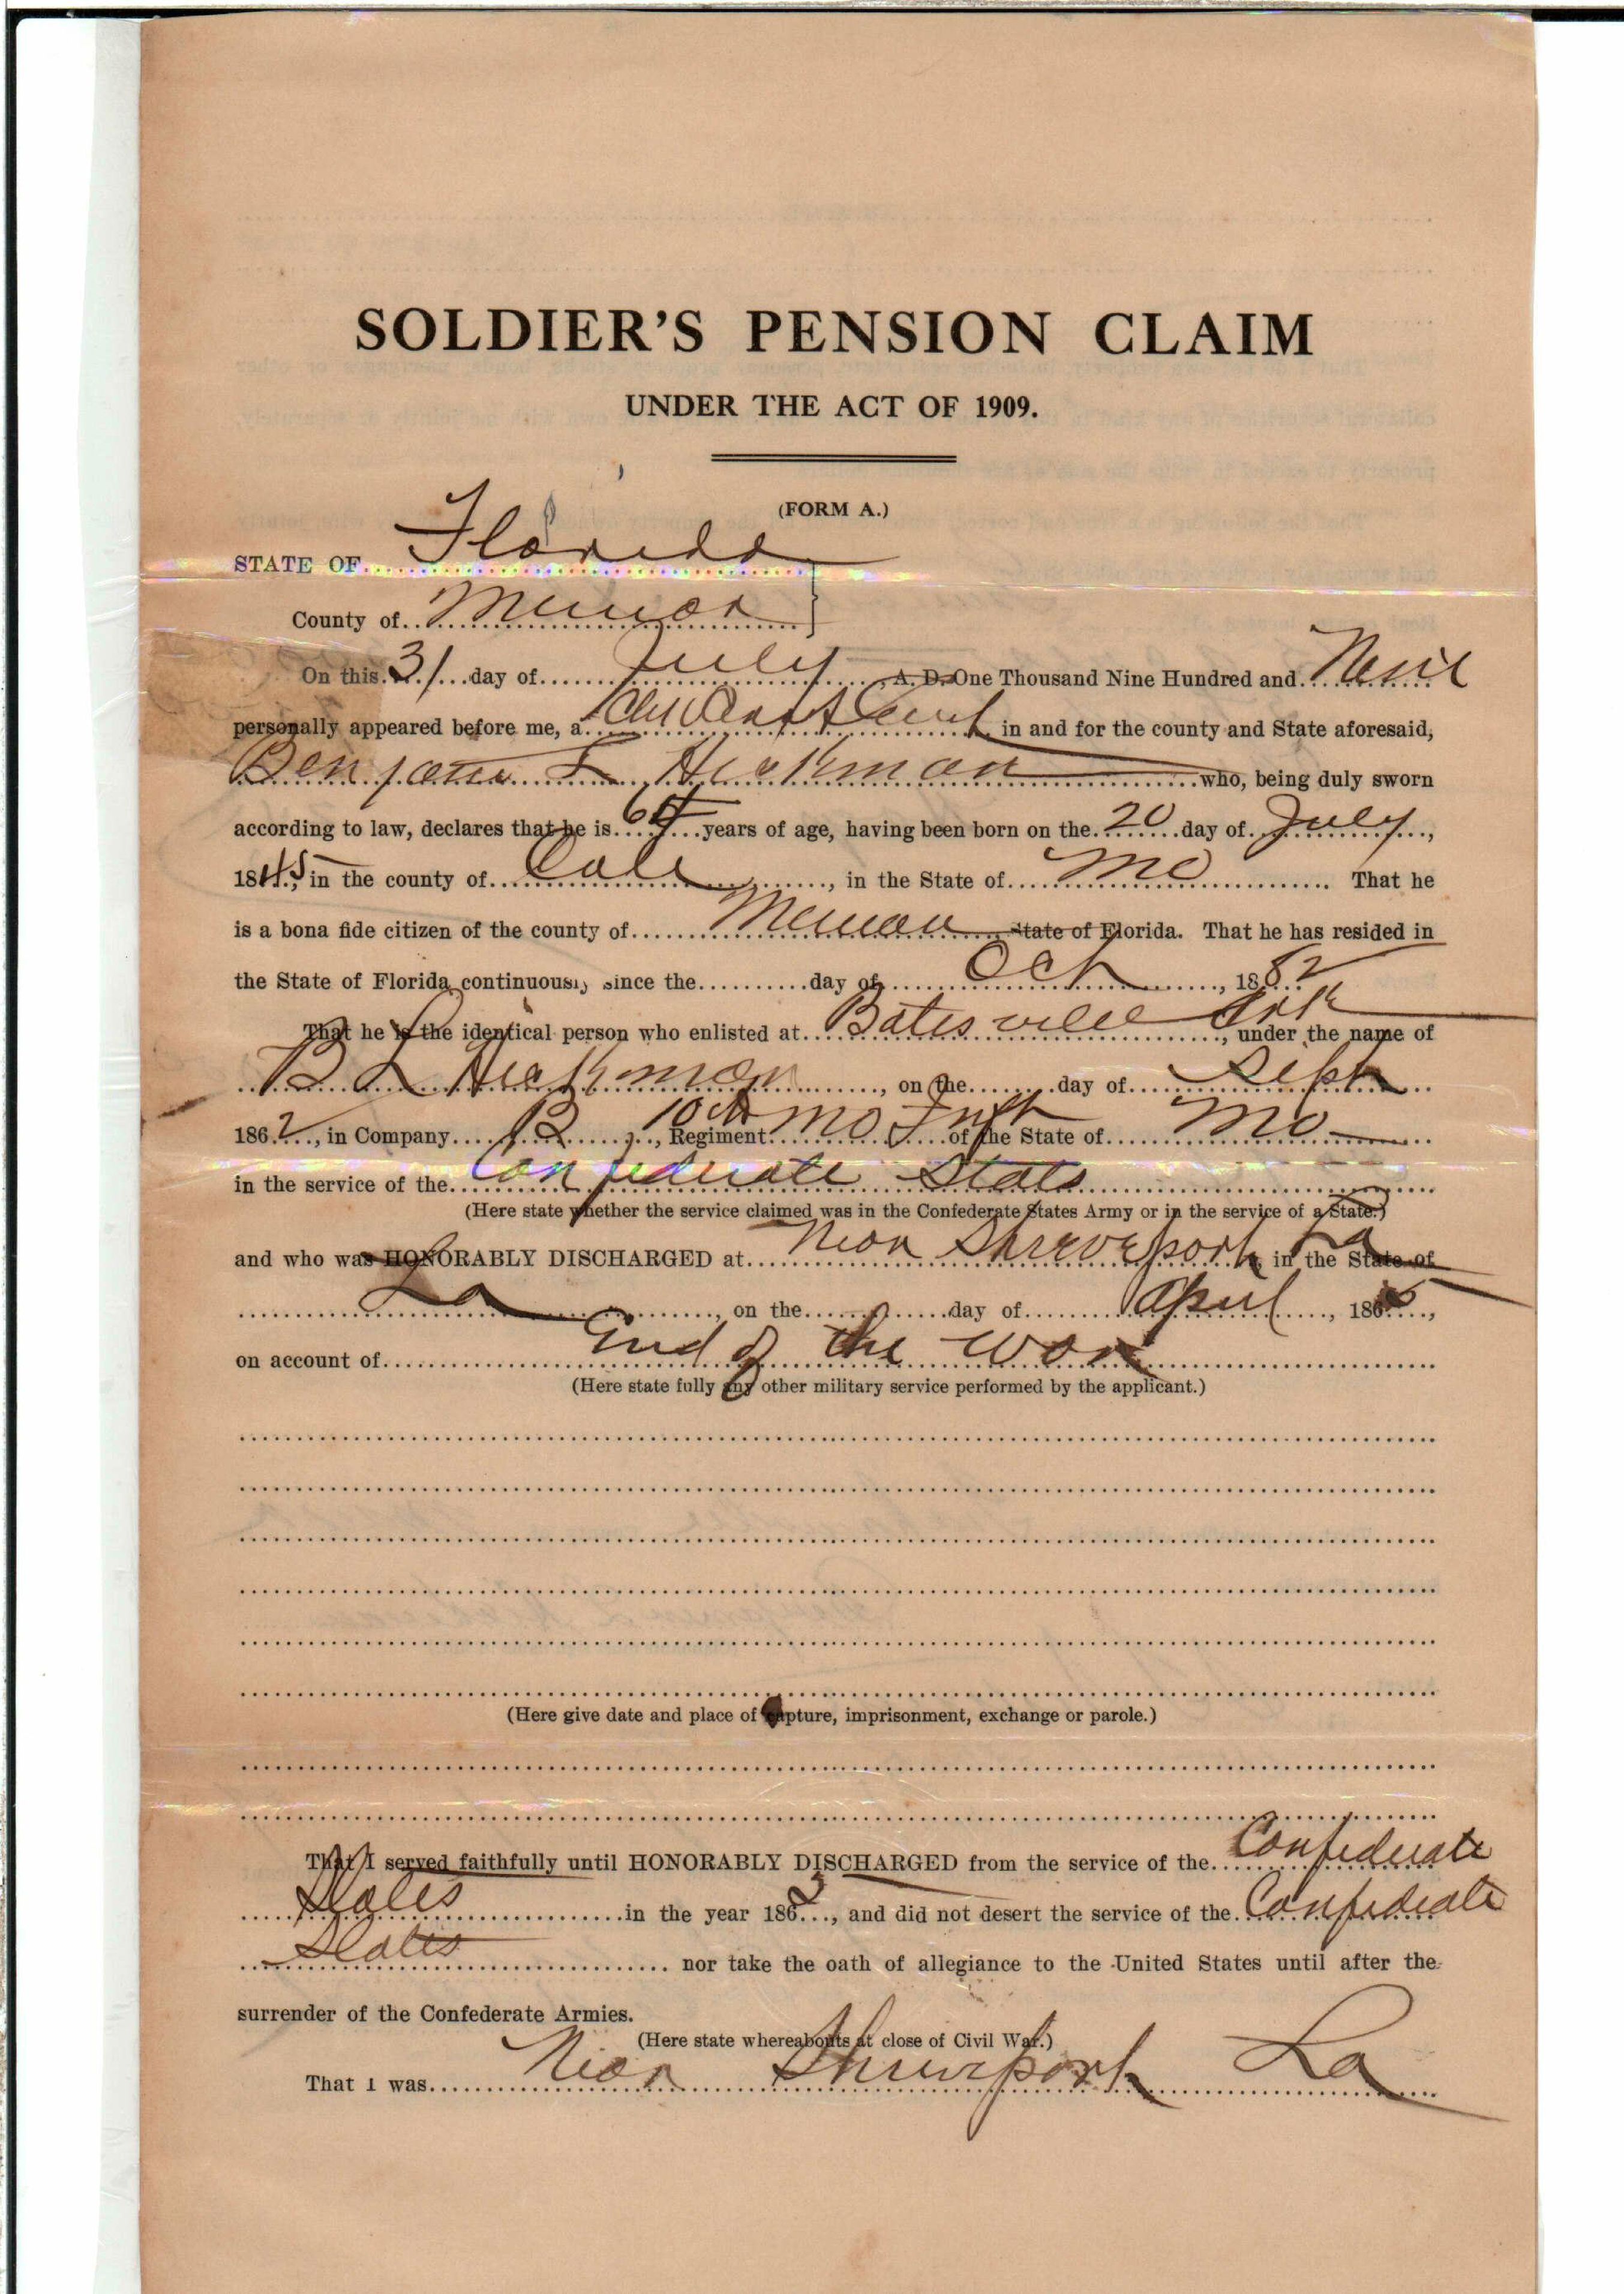 SOLDIER'S PENSION CLAIM
UNDER THE ACT OF 1909.
(FORM A.)
STATE OF Florida
County of
On this 31 day of July A. D. One Thousand Nine Hundred and Nine
personally appeared before me, a in and for the county and State aforesaid,
Benjamin L Hickman who, being duly sworn
according to law, declares that he is 64 years of age, having been born on the 20 day of July,
1845, in the county of Cole, in the State of Mo. That he
is a bona fide citizen of the county of State of Florida. That he has resided in
the State of Florida continuously since the day of Oct, 1882
That he is the identical person who enlisted at Batesville Ark, under the name of
B L Hickman, on the day of Sept
1862, in Company B, 10th Regiment Mo Inft of the State of Mo
in the service of the Confederate States
(Here state whether the service claimed was in the Confederate States Army or in the service of a State.)
and who was HONORABLY DISCHARGED at Near Shreveport La, in the State of
La, on the day of April, 1865,
on account of End of the War
(Here state fully any other military service performed by the applicant.)
(Here give date and place of capture, imprisonment, exchange or parole.)
That I served faithfully until HONORABLY DISCHARGED from the service of the Confederate
States in the year 186, and did not desert the service of the Confederate
States nor take the oath of allegiance to the United States until after the
surrender of the Confederate Armies.
(Here state whereabouts at close of Civil War.)
That I was Near Shreveport La